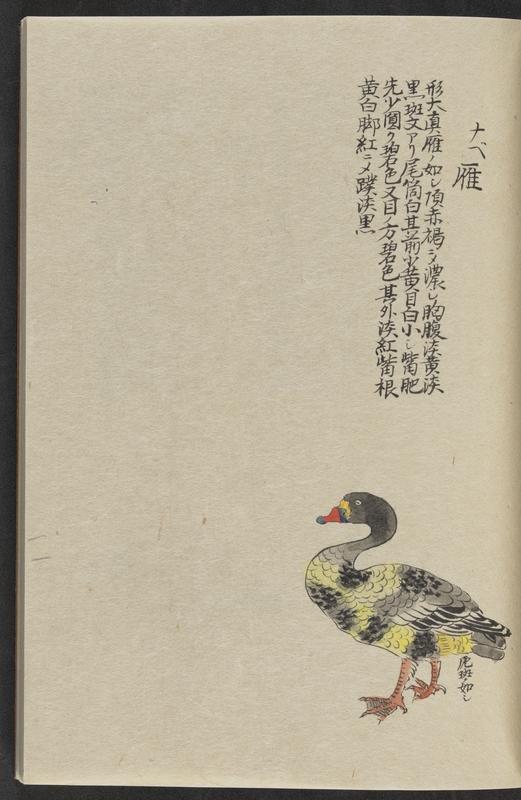 ナベ雁
形大真雁ノ如シ頂赤褐ニメ濃シ胸腹淡黄淡
黒斑文アリ尾筒白其前少黄目白小シ觜肥
先少圓ク碧色又目ノ方碧色其外淡紅觜根
黄白脚紅ニメ蹼淡黒
尾斑ノ如シ